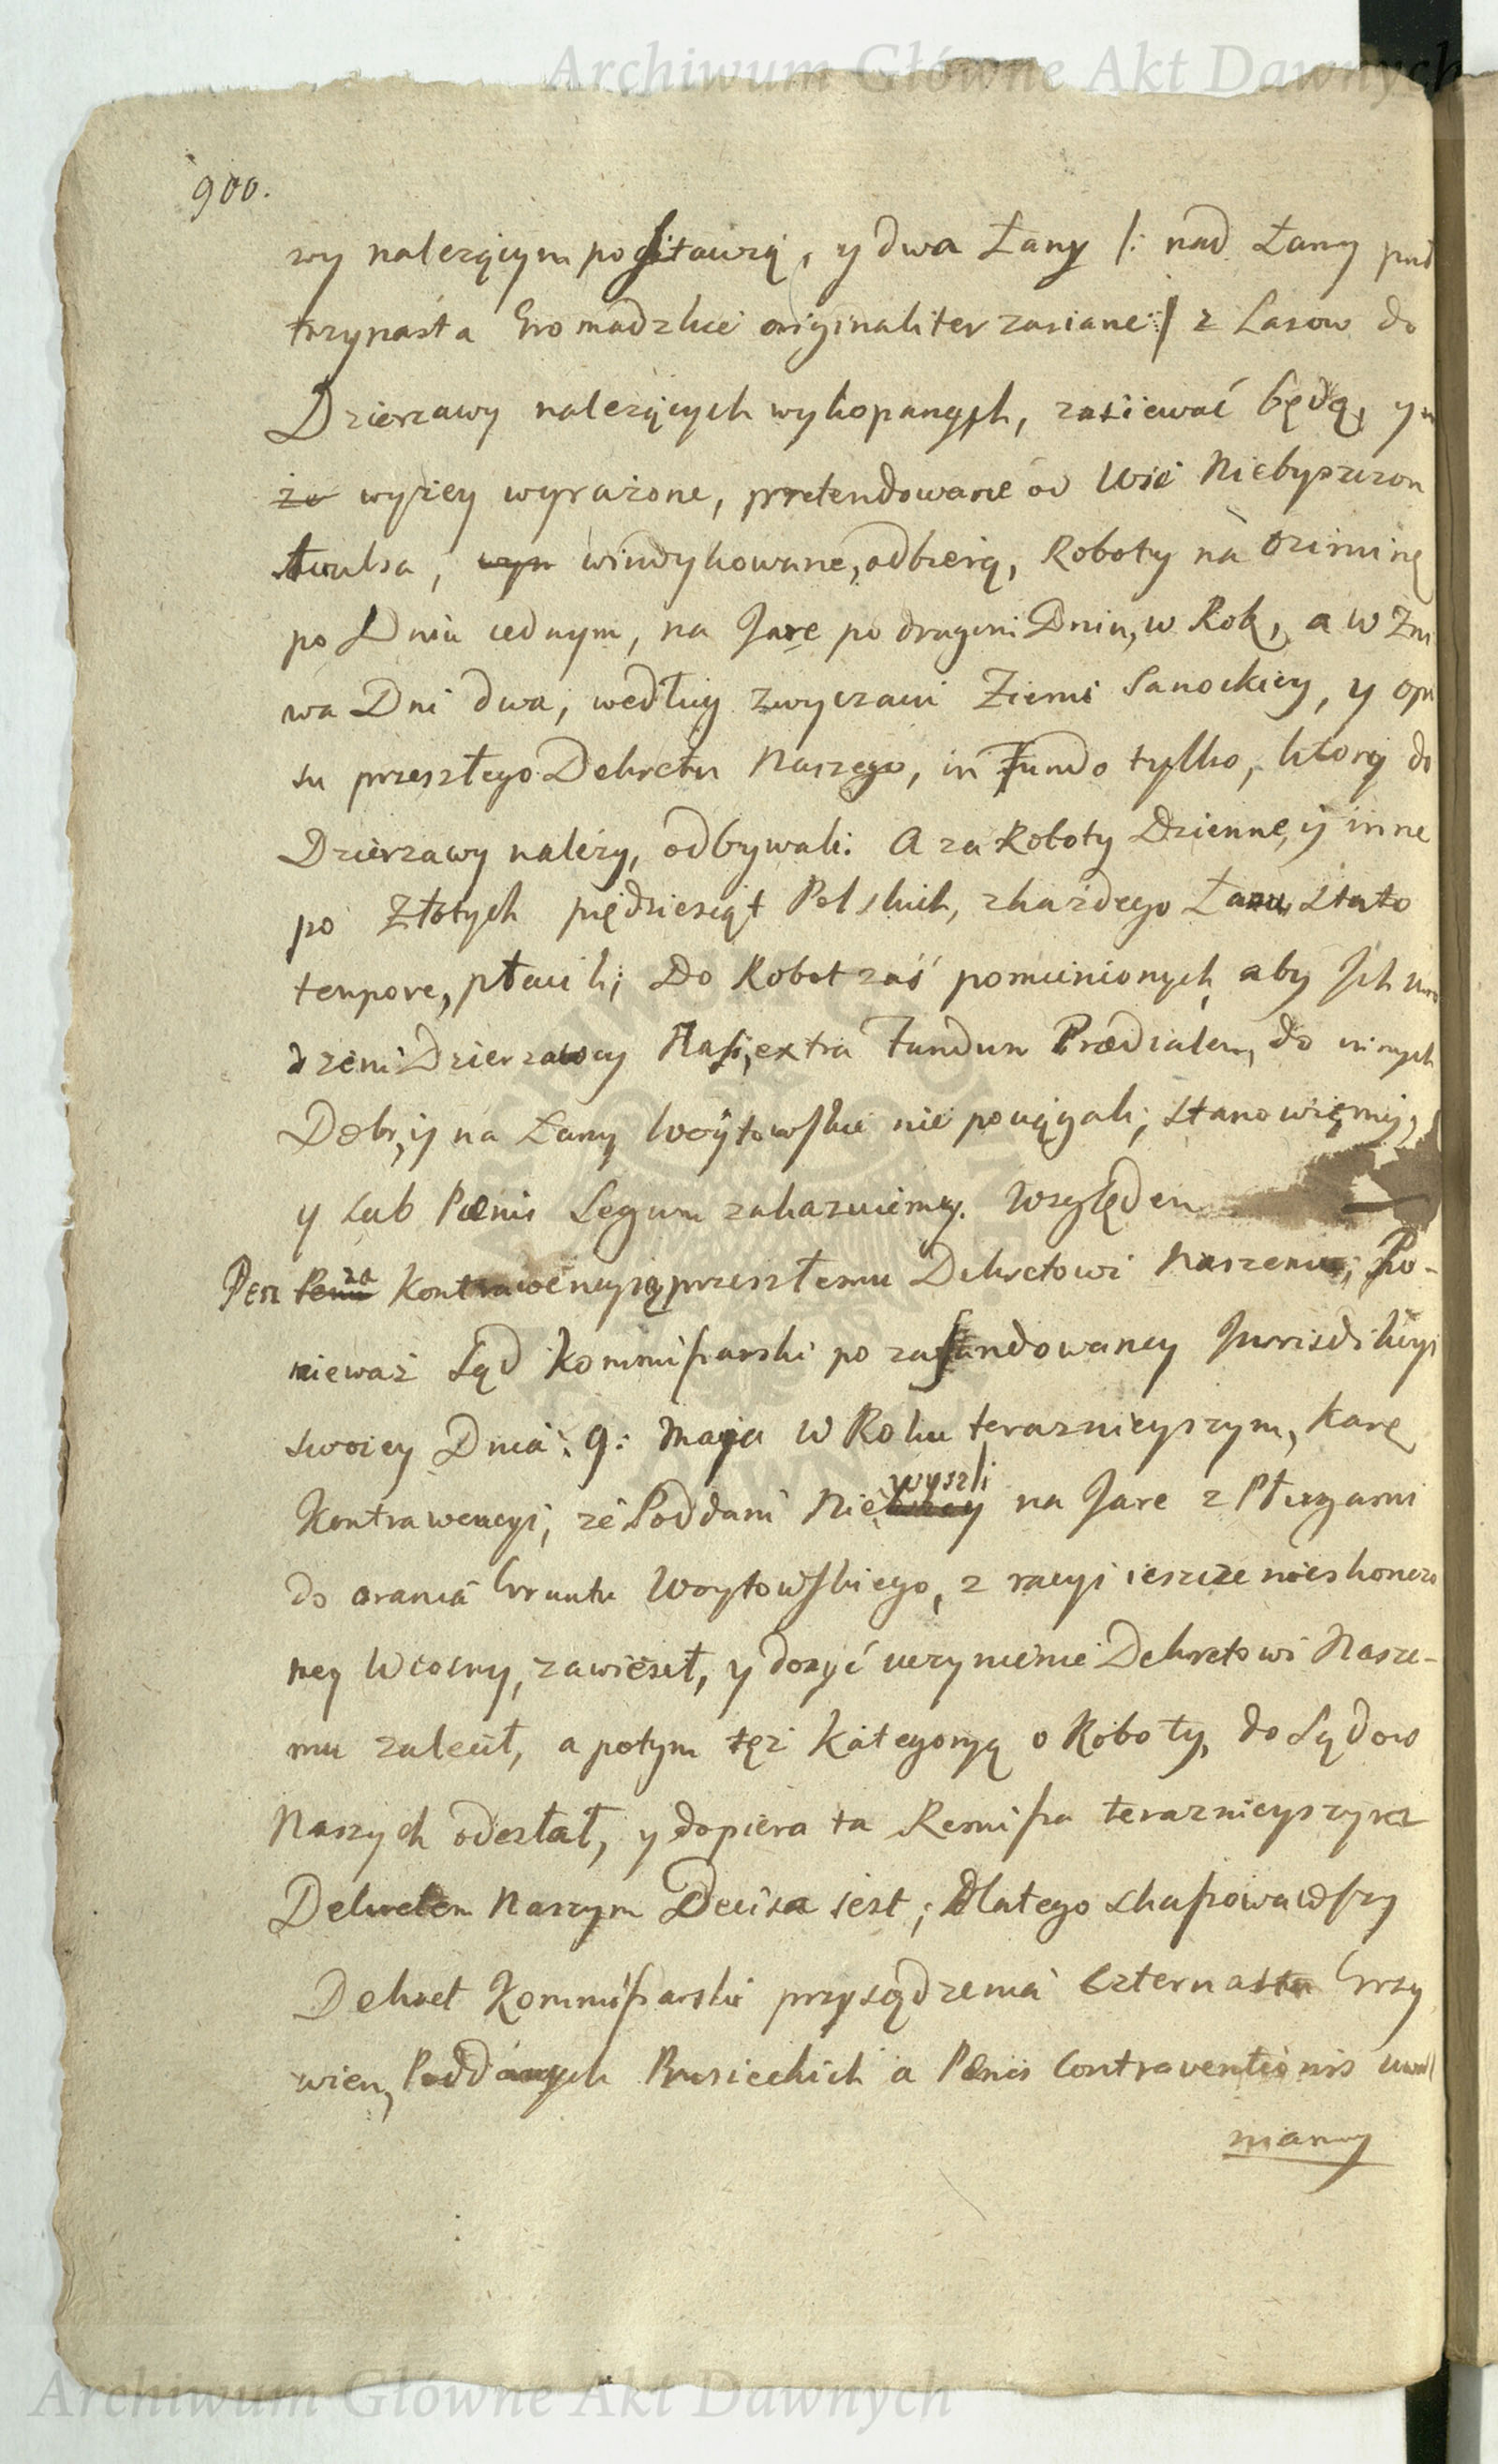 Archiwum Główne Akt Dawnych
900.
wy nalezącym postawią, y dwa Łany /: nad Łany
trzynasta Gromadzkie originaliter zasiane :/ z Lasow do
Dzierzawy nalezących wykopanych, zasiewać będą, y
za wyzey wyrażone, pretendowane od Wsi
wyn windykowane, odbierą, Roboty na Oziminę
po Dniu iednym, na Jare po drugim Dniu, w Rok, a w Zni
wa Dni dwa, według zwyczaiu Ziemi Sanockiey, y opi
su przeszłego Dekretu Naszego, in Fundo tylko, ktory do
Dzierzawy nalezy, odbywali. A za Roboty Dzienne, y inne
po Złotych pięćdziesiąt Polskich, z każdego Łanu, Stato
tempore, płacili; Do Robot zaś pomienionych, aby Ich
dzeni Dzierzawcy Nasi, extra Fundum Prædialem, do innych
Dobr, y na Łany Woytowskie nie pociągali; stanowięmy,
y sub Pœnis Legum zakazuiemy. Względem
Pen Penn za Kontrawencyią przeszłemu Dekretowi Naszemu; Po-
nieważ Sąd Kommissarski po zafundowaney Jurisdikcyi
swoiey Dnia: 9: Maja w Roku teraznieyszym, Karę
Kontrawencyi, że Poddani Nie wyszli na Jare z Pługami
do orania Gruntu Woytowskiego, z racyi ieszcze nieskonczo
ney Wiosny, zawiesił, y dosyć uczynienie Dekretowi Nasze-
mu zalecił, a potym też Kategoryą o Roboty, do Sądow
Naszych odesłał, y dopiero ta Remissa teraznieyszym
Dekretem Naszym Decisa iest; dlatego skassowawszy
Dekret Kommissarski przysądzenia Czternastu Grzy
wien, Poddanych Prusieckich a Pœnis Contraventionis uwol
niamy
Archiwum Główne Akt Dawnych